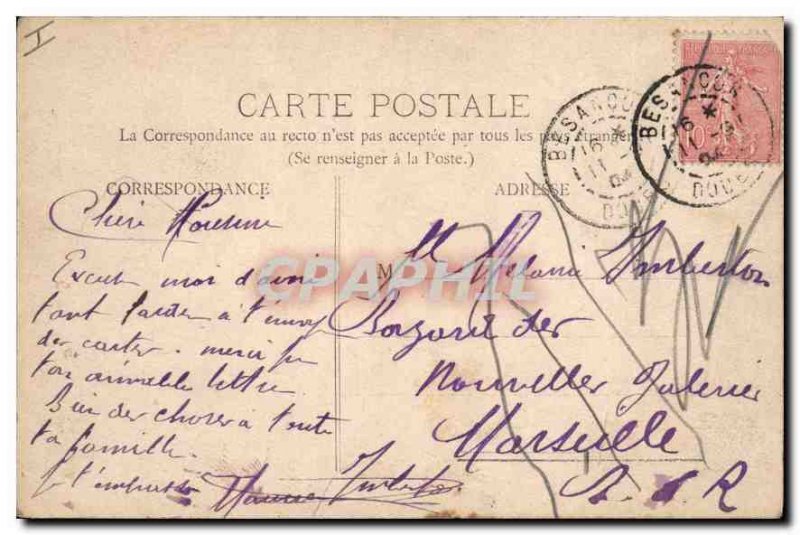 I
CARTE POSTALE
La Correspondance au recto n'est pas acceptée par tous les pays étrangers
(Se renseigner à la Poste.)
CORRESPONDANCE
ADRESSE
BESANÇON
16
11
04
DOUBS
BESANÇON
16
11
04
DOUBS
Chère
Excuse moi d'avoir
tant tarder à t'envoyer
des cartes. merci pour
ton aimable lettre
Bien des choses a toute
ta famille
Je t'embrasse
M
Imberton
des
Nouvelles Galeries
Marseille
B. d R
CPAPHIL